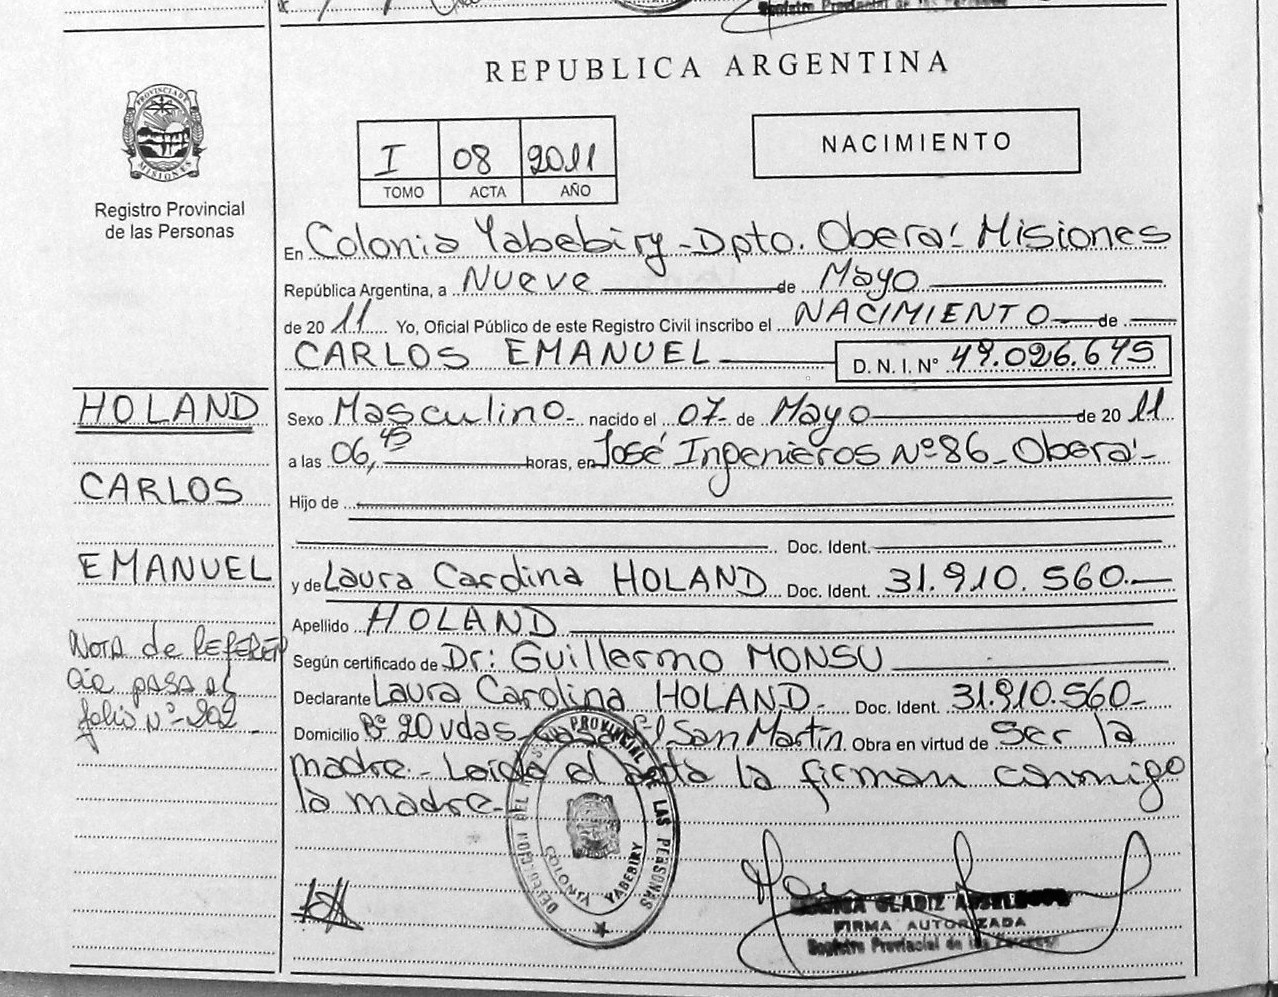 REPUBLICA ARGENTINA
PROVINCIA DE MISIONES
Registro Provincial
de las Personas
I 08 2011
TOMO ACTA AÑO
NACIMIENTO
En Colonia Yabebiry - Dpto. Oberá - Misiones
República Argentina, a Nueve de Mayo
de 20 11 Yo, Oficial Público de este Registro Civil inscribo el NACIMIENTO de
CARLOS EMANUEL D. N. I. N° 49.026.645
HOLAND
CARLOS
EMANUEL
Nota de REFEREN
cia PASA al
folio Nº - 202
Sexo Masculino - nacido el 07 - de Mayo de 20 11
a las 06,45 horas, en José Ingenieros Nº 86 - Oberá -
Hijo de
Doc. Ident.
y de Laura Carolina HOLAND Doc. Ident. 31.910.560.-
Apellido HOLAND
Según certificado de Dr: Guillermo MONSU
Declarante Laura Carolina HOLAND - Doc. Ident. 31.910.560 -
Domicilio Bº 20 vdas San Martín. Obra en virtud de Ser la
madre - Leída el acta la firman conmigo
la madre -
PROVINCIAL DE LAS PERSONAS
COLONIA YABEBIRY
GLADIZ
FIRMA AUTORIZADA
Registro Provincial de las Personas